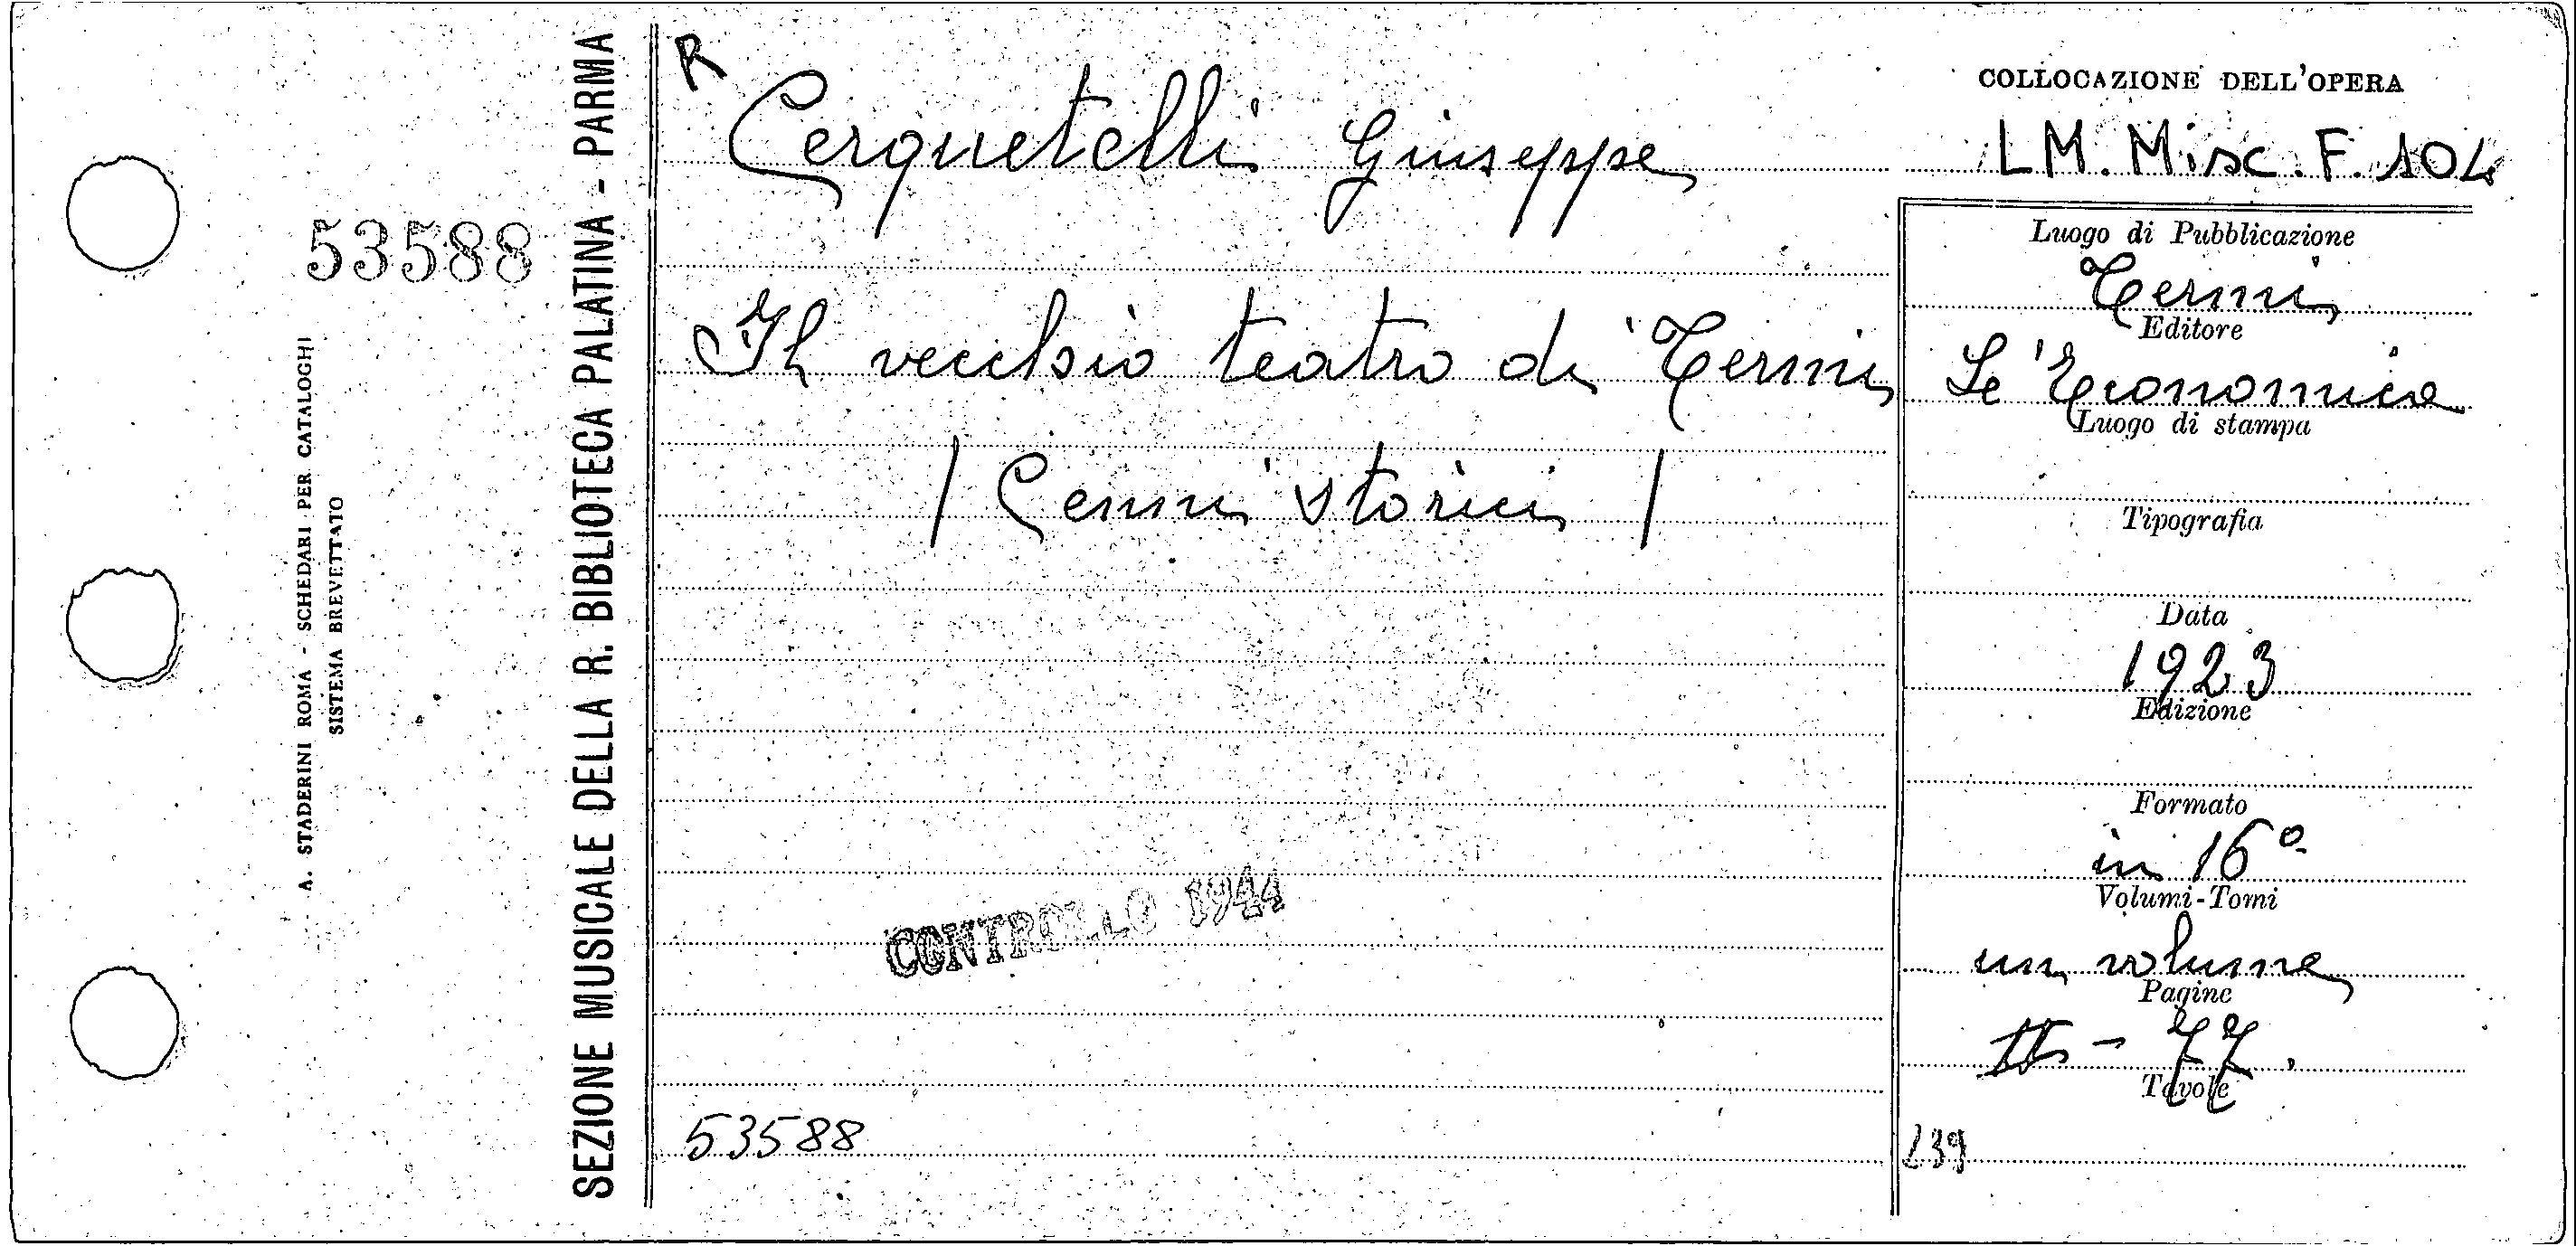 53588
A. STADERINI ROMA - SCHEDARI PER CATALOGHI
SISTEMA BREVETTATO
SEZIONE MUSICALE DELLA R. BIBLIOTECA PALATINA - PARMA
R
Cerquetelli Giuseppe
Il vecchio teatro di Terni
/ Cenni storici /
CONTROLLO 1944
53588
COLLOCAZIONE DELL'OPERA
LM. Misc. F. 104
Luogo di Pubblicazione
Terni
Editore
L'Economica
Luogo di stampa
Tipografia
Data
1923
Edizione
Formato
in 16º
Volumi-Tomi
un volume
Pagine
II - 77.
Tavole
239